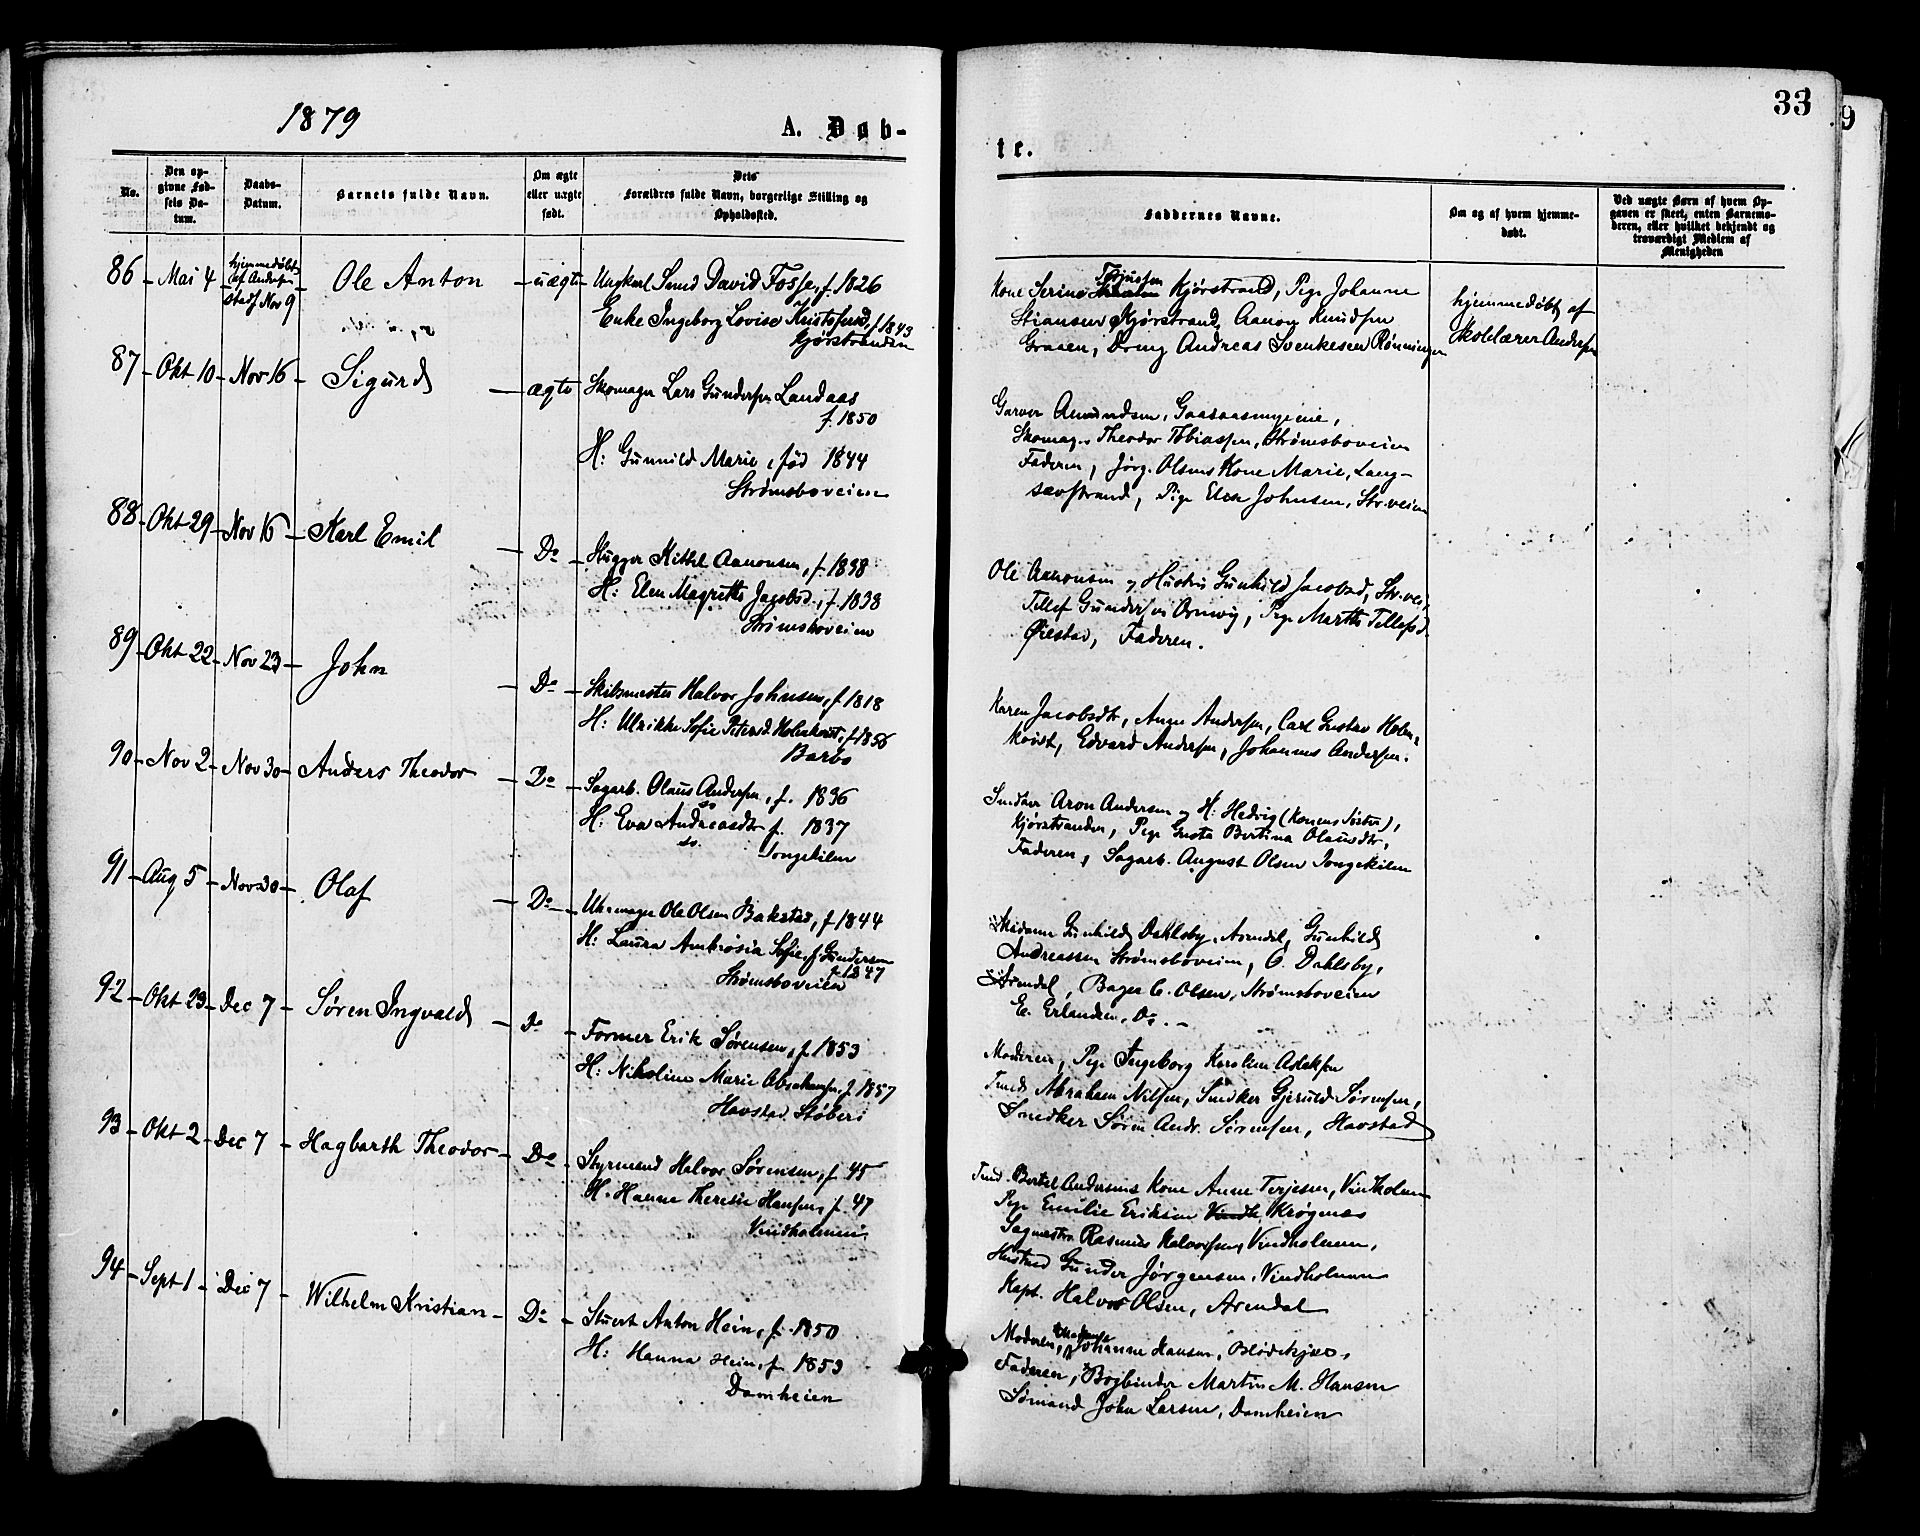 1879
A. Døb-
te.
33
9
No.
Den op-
givne Fød-
sels Da-
tum.
Daabs-
Datum.
Barnets fulde Navn.
Om ægte
eller uægte
født.
Dets
Forældres fulde Navn, borgerlige Stilling og
Opholdssted.
Faddernes Navne.
Om og af hvem hjemme-
døbt.
Ved uægte Børn af hvem Op-
gaven er skeet, enten Barnemo-
deren, eller hvilket bekjendt og
troværdigt Medlem af
Menigheden
86 Mai 4 hjemmedøbt
af Andersen
stadf. Nov 9
Ole Anton uægte
Ungkarl Smed David Fosse, f. 1826
Enke Ingeborg Lovise Kristofersd, f. 1843
Kjørstranden
Kone Serine Terjussen Kjørstrand, Pige Johanne
Stiansen Kjørstrand, Aanon Knudsen
Graaen, Dreng Andreas Svenkesen Rønningen
hjemmedøbt af
Skolelærer Andersen
87 Okt 10 Nov 16 Sigurd ægte
Skomager Lars Gundersen Landaas
f. 1850
H: Gunnild Marie, fød 1844
Strømsboveien
Garver Amundsen, Gaasaasmyrene,
Skomag. Theodor Tobiassen, Strømsboveien
Faderen, Jørg. Olsens Kone Marie, Lang-
sævstrand, Pige Elen Johnsen, Str.veien
88 Okt 29 Nov 16 Karl Emil Do
Hugger Kittel Aanonsen, f. 1838
H: Elen Magrethe Jacobsd., f. 1838
Strømsboveien
Ole Aanonsen og Hustru Gunhild Jacobsd, Str.vei,
Tellef Gundersen Ormvig, Pige Marthe Tellefsd
Øiestad, Faderen.
89 Okt 22 Nov 23 John Do
Skibsmester Halvor Johnsen, f. 1818
H: Ulrikke Sofie Petersd Holmkvist, f. 1856
Barbo
Karen Jacobsdtr, Anne Andersen, Carl Gustav Holm-
kvist, Edvard Andersen, Johannes Andersen.
90 Nov 2 Nov 30 Anders Theodor Do
Sagarb. Olaus Andersen, f. 1836
H: Eva Andreasdtr f. 1837
Songekilen
Smedsv Aron Andersen og H: Hedvig (Konens Søster),
Kjørstranden, Pige Gusta Bertina Olausdtr,
Faderen, Sagarb. August Olsen Songekilen
91 Aug 5 Nov 30 Olaf Do
Uhrmager Ole Olsen Bakstad, f. 1844
H: Laura Ambrosia Sofie, f. Gundersen
f. 1847
Strømsboveien
Madame Gunhild Dahlsby, Arendal, Gunhild
Andreassen Strømsboveien, O. Dahlsby,
Arendal, Bager C. Olsen, Strømsboveien
E. Erlandsen, Do.
92 Okt 23 Dec 7 Søren Ingvald Do
Former Erik Sørensen, f. 1853
H: Nikoline Marie Abrahamsen, f. 1857
Havstad Støberi
Moderen, Pige Ingeborg Karoline Aslaksen
Tmd. Abraham Nilsen, Snedker Gjeruld Sørensen,
Snedker Søren Andr. Sørensen, Havstad
93 Okt 2 Dec 7 Hagbarth Theodor Do
Styrmand Halvor Sørensen, f. 45
H. Hanne Therese Hansen, f. 47
Vindholmen
Tmd. Bertel Andersens Kone Anne Terjesen, Vindholmen
Pige Emilie Eriksen Krøgenæs
Sagmester Rasmus Halvorsen, Vindholmen,
Gunder Jørgensen, Vindholmen
Kapt. Halvor Olsen, Arendal
94 Sept 1 Dec 7 Wilhelm Kristian Do
Stuert Anton Hein, f. 1850
H: Hanna Hein, f. 1853
Damheien
Moderen, Madame Johanne Hansen, Blødekjær,
Faderen, Bogbinder Martin M. Hansen
Sømand John Larsen, Damheien